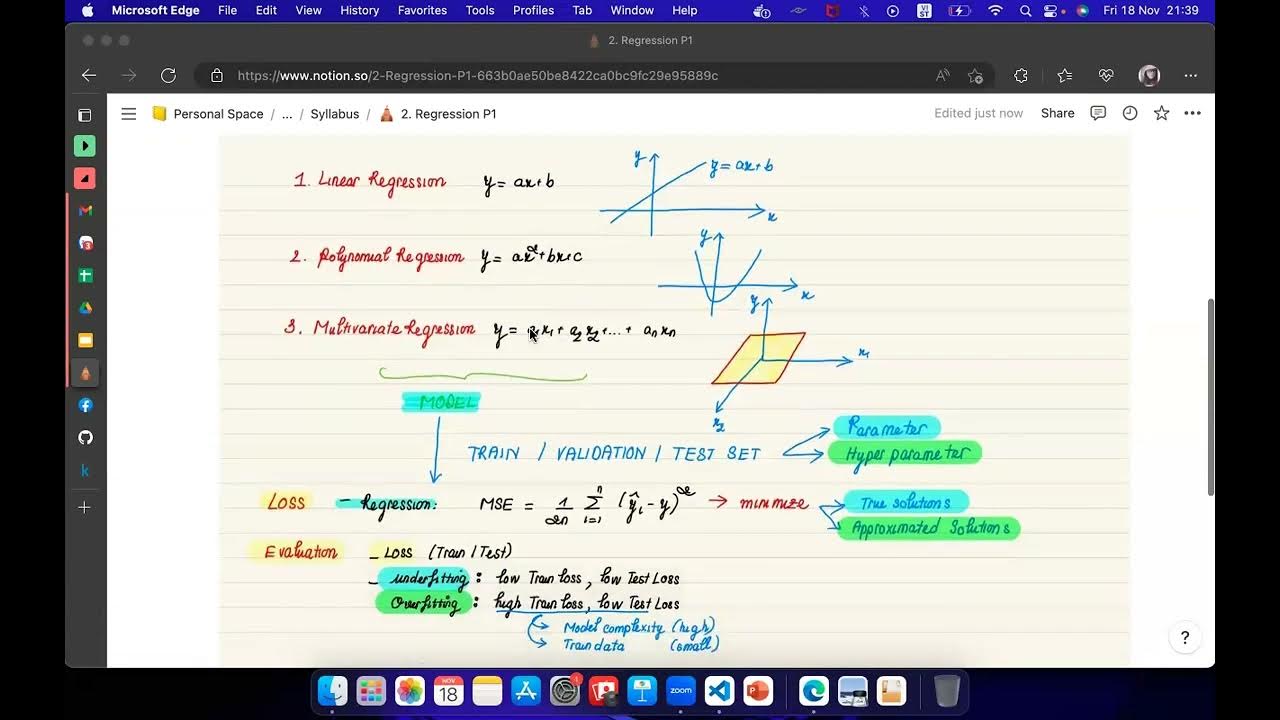 Microsoft Edge File Edit View History Favorites Tools Profiles Tab Window Help VI ST Fri 18 Nov 21:39
2. Regression P1
https://www.notion.so/2-Regression-P1-663b0ae50be8422ca0bc9fc29e95889c
Personal Space / ... / Syllabus / 2. Regression P1 Edited just now Share
1. Linear Regression y = ax+b
y y = ax+b x
2. Polynomial Regression y = ax²+bx+c
y x
3. Multivariate Regression y = x₁+ a₂x₂+...+ aₙxₙ
y x₁ x₂
MODEL
TRAIN / VALIDATION / TEST SET Parameter
Hyper parameter
LOSS - Regression: MSE = 1/2n Σ i=1 n (ŷᵢ-y)² → minimize True solutions
Approximated Solutions
Evaluation - Loss (Train/Test)
- underfitting: low Train loss, low Test Loss
Overfitting: high Train loss, low Test Loss
Model complexity (high)
Train data (small)
?
NOV
18
1
zoom